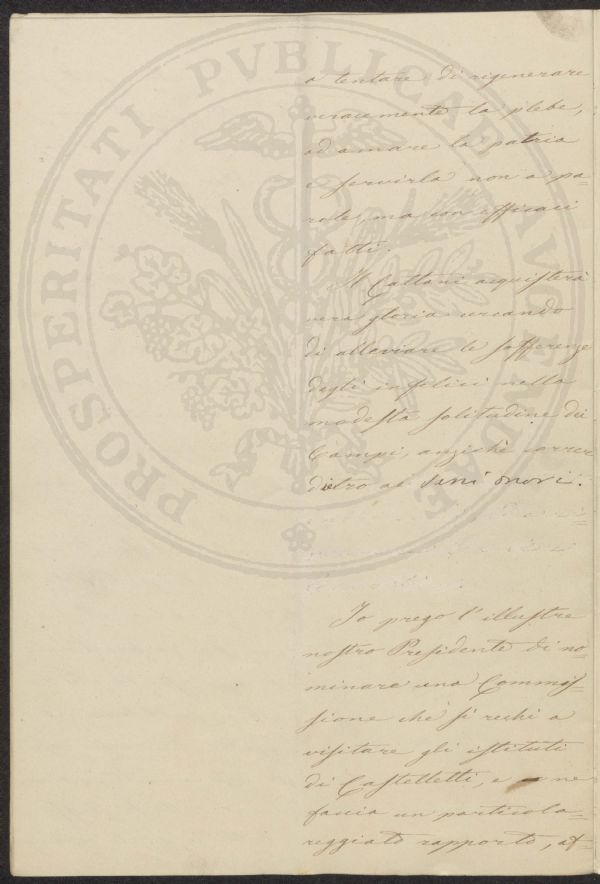 a tentare di rigenerare
veracemente la plebe,
ad amare la patria
e servirla non a pa=
role, ma con efficaci
fatti.
Il Cattani acquisterà
vera gloria cercando
di alleviare le sofferenze
degli infelici nella
modesta solitudine dei
Campi, anzichè correre
dietro ai vani onori.
Io prego l'illustre
nostro Presidente di no=
minare una Commis=
sione che si rechi a
visitare gli istituti
di Castelletti, e ne
faccia un particola=
reggiato rapporto, af=
PROSPERITATI PVBLICAE AVGENDAE